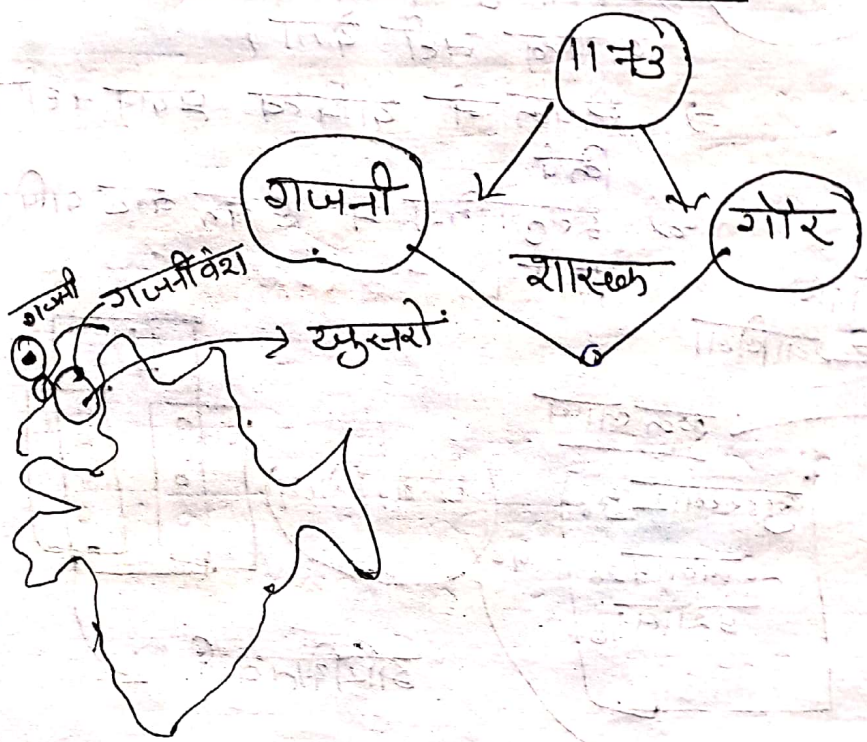 1173
गजनी
गौर
शासक
गजनी
गजनी वंश
खुसरों